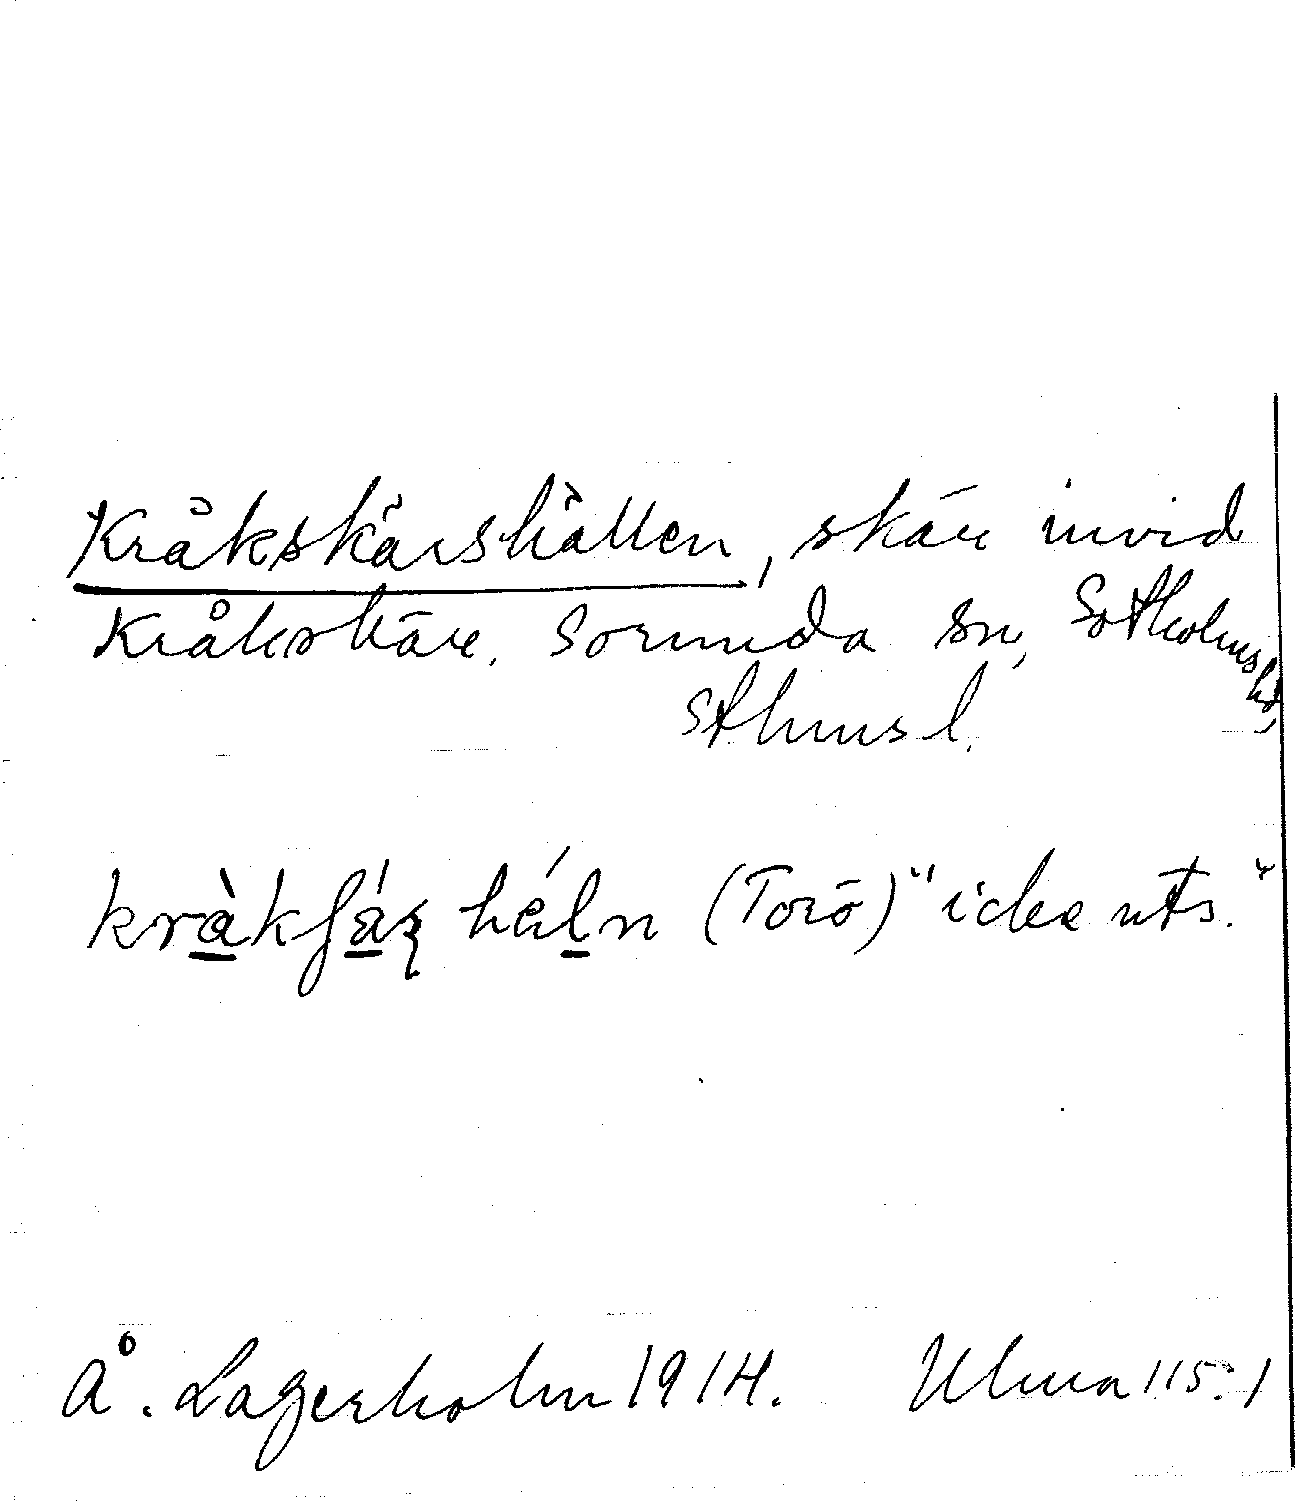 Kråkskärshällen, skär invid
Kråkskär. Sorunda sn, Sotholms hd,
Sthms l.
kràkʃáʂ héln (Torö) "icke uts."
Å. Lagerholm 1914. Ulma 115:1